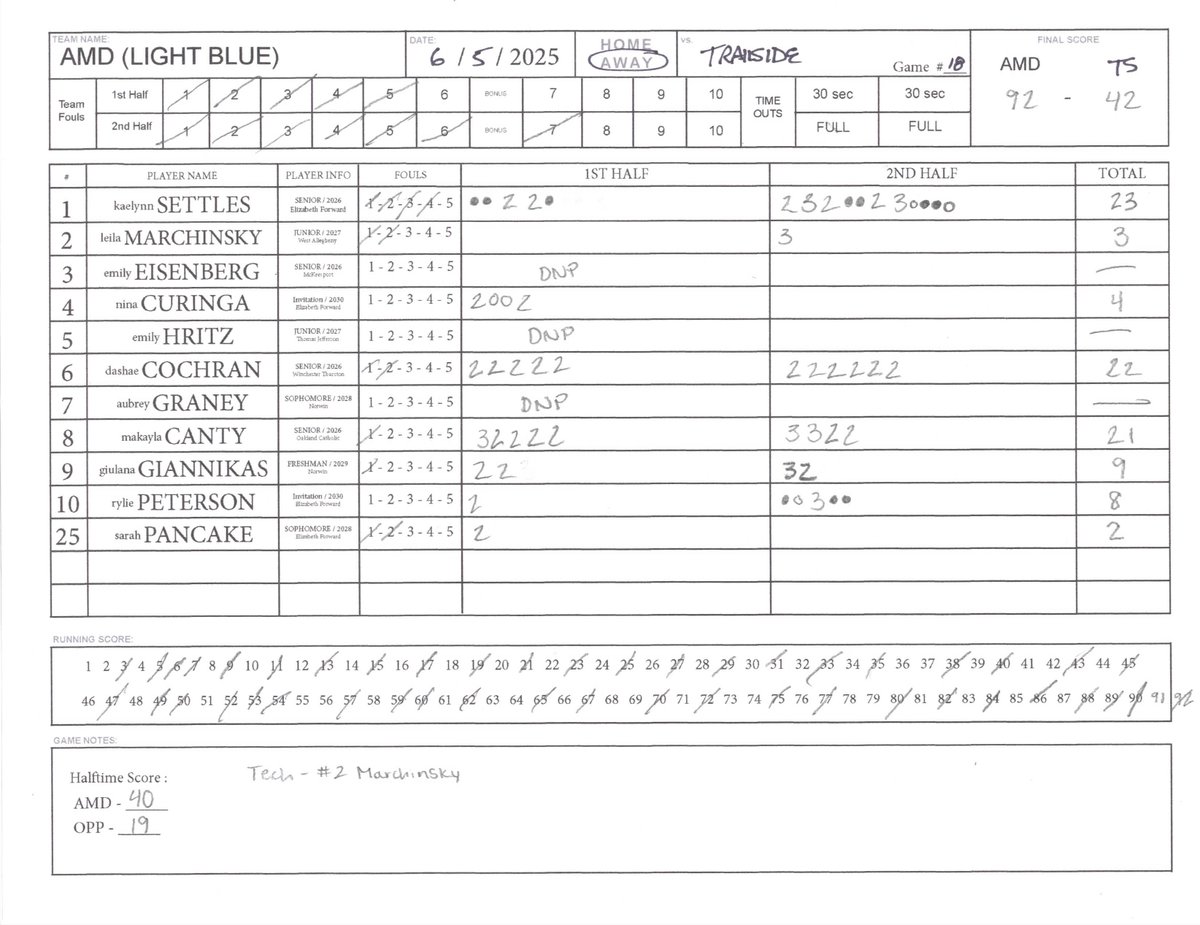 TEAM NAME: DATE: HOME VS. FINAL SCORE
AMD (LIGHT BLUE) 6 / 5 / 2025 AWAY TRAILSIDE Game # 18 AMD TS
92 - 42
Team Fouls 1st Half 1 2 3 4 5 6 BONUS 7 8 9 10 TIME OUTS 30 sec 30 sec
2nd Half 1 2 3 4 5 6 BONUS 7 8 9 10 FULL FULL
# PLAYER NAME PLAYER INFO FOULS 1ST HALF 2ND HALF TOTAL
1 kaelynn SETTLES SENIOR / 2026 Elizabeth Forward 1 - 2 - 3 - 4 - 5 ●●22● 232●●230●●0 23
2 leila MARCHINSKY JUNIOR / 2027 West Allegheny 1 - 2 - 3 - 4 - 5 3 3
3 emily EISENBERG SENIOR / 2026 McKeesport 1 - 2 - 3 - 4 - 5 DNP —
4 nina CURINGA Invitation / 2030 Elizabeth Forward 1 - 2 - 3 - 4 - 5 2002 4
5 emily HRITZ JUNIOR / 2027 Thomas Jefferson 1 - 2 - 3 - 4 - 5 DNP —
6 dashae COCHRAN SENIOR / 2026 Winchester Thurston 1 - 2 - 3 - 4 - 5 22222 222222 22
7 aubrey GRANEY SOPHOMORE / 2028 Norwin 1 - 2 - 3 - 4 - 5 DNP —
8 makayla CANTY SENIOR / 2026 Oakland Catholic 1 - 2 - 3 - 4 - 5 32222 3322 21
9 giulana GIANNIKAS FRESHMAN / 2029 Norwin 1 - 2 - 3 - 4 - 5 22 32 9
10 rylie PETERSON Invitation / 2030 Elizabeth Forward 1 - 2 - 3 - 4 - 5 2 ●○3●● 8
25 sarah PANCAKE SOPHOMORE / 2028 Elizabeth Forward 1 - 2 - 3 - 4 - 5 2 2
RUNNING SCORE:
1 2 3 4 5 6 7 8 9 10 11 12 13 14 15 16 17 18 19 20 21 22 23 24 25 26 27 28 29 30 31 32 33 34 35 36 37 38 39 40 41 42 43 44 45
46 47 48 49 50 51 52 53 54 55 56 57 58 59 60 61 62 63 64 65 66 67 68 69 70 71 72 73 74 75 76 77 78 79 80 81 82 83 84 85 86 87 88 89 90 91 92
GAME NOTES:
Halftime Score : Tech - #2 Marchinsky
AMD - 40
OPP - 19